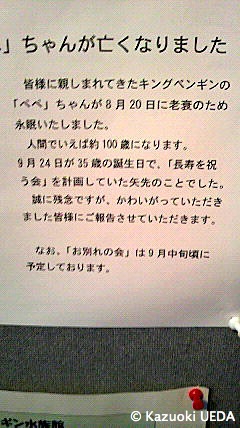 」ちゃんが亡くなりました
皆様に親しまれてきたキングペンギンの
「ペペ」ちゃんが8月20日に老衰のため
永眠いたしました。
人間でいえば約100歳になります。
9月24日が35歳の誕生日で、「長寿を祝
う会」を計画していた矢先のことでした。
誠に残念ですが、かわいがっていただき
ました皆様にご報告させていただきます。
なお、「お別れの会」は9月中旬頃に
予定しております。
ギン水族館
© Kazuoki UEDA